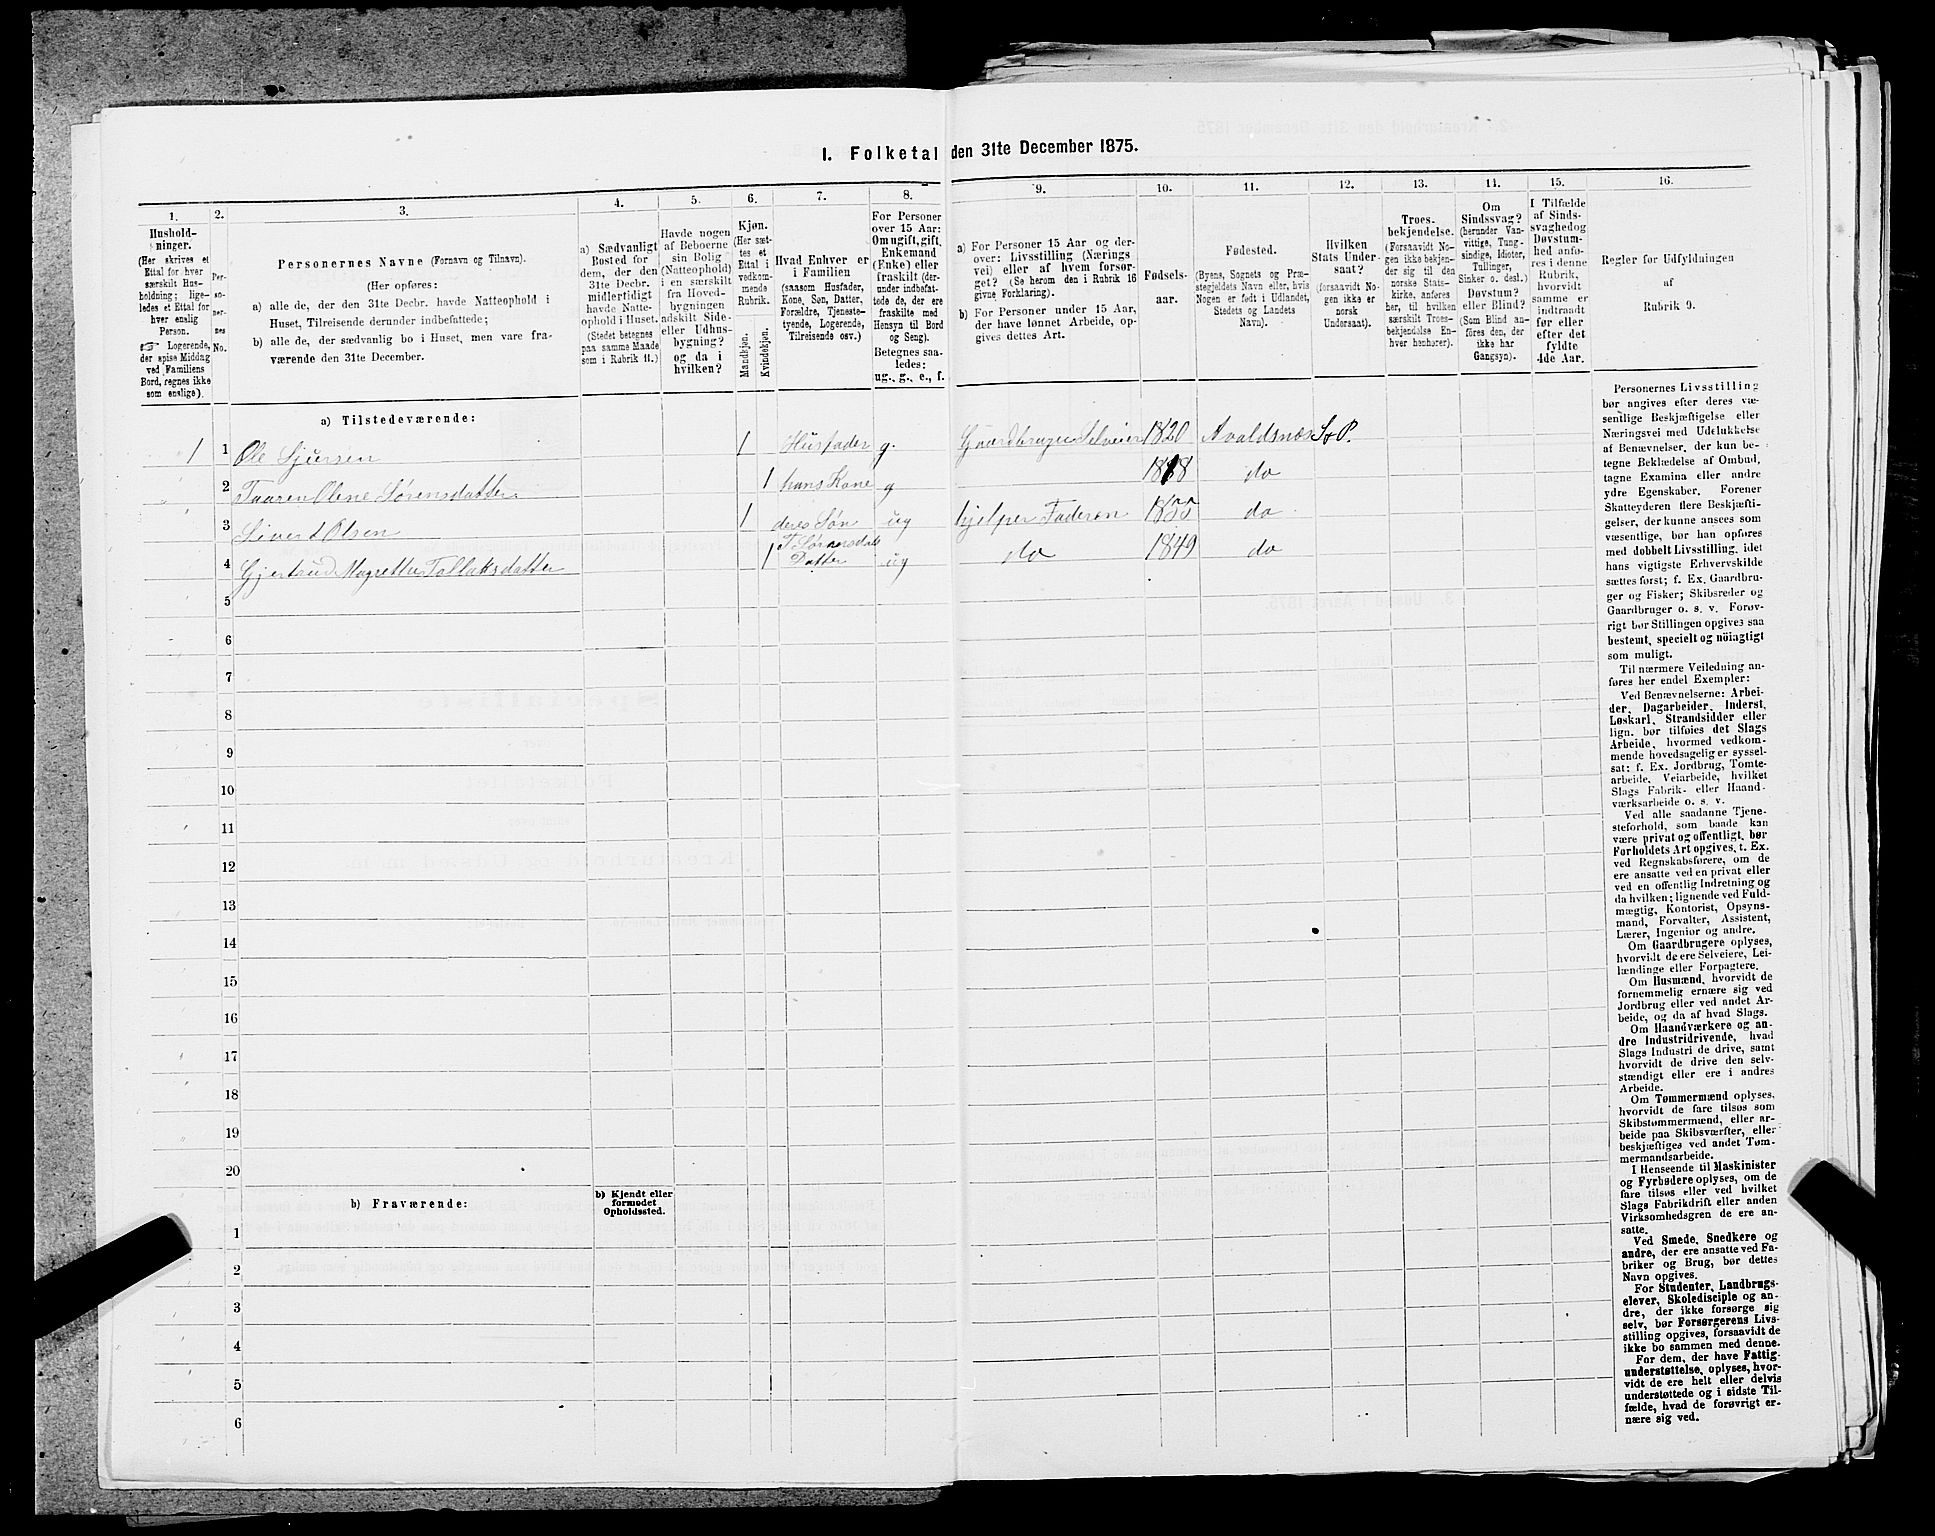 I. Folketal den 31te December 1875.
1. 2. 3. 4. 5. 6. 7. 8. 9. 10. 11. 12. 13. 14. 15. 16.
Hushold-
ninger.
(Her skrives et
Ettal for hver
særskilt Hus-
holdning; lige-
ledes et Ettal for
hver enslig
Person.
☞ Logerende,
der spise Middag
ved Familiens
Bord, regnes ikke
som enslige).
Per-
so-
ner-
nes
No.
Personernes Navne (Fornavn og Tilnavn).
(Her opføres:
a) alle de, der den 31te Decbr. havde Natteophold i
Huset, Tilreisende derunder indbefattede;
b) alle de, der sædvanlig bo i Huset, men vare fra-
værende den 31te December.
a) Sædvanligt
Bosted for
dem, der den
31te Decbr.
midlertidigt
havde Natte-
ophold i Huset.
(Stedet betegnes
paa samme Maade
som i Rubrik 11.)
Havde nogen
af Beboerne
sin Bolig
(Natteophold)
i en særskilt
fra Hoved-
bygningen
adskilt Side-
eller Udhus-
bygning?
og da i
hvilken?
Kjøn.
(Her sæt-
tes et
Ettal i
vedkom-
mende
Rubrik.
Mandkjøn.
Kvindekjøn.
Hvad Enhver er
i Familien
(saasom Husfader,
Kone, Søn, Datter,
Forældre, Tjeneste-
tyende, Logerende,
Tilreisende osv.)
For Personer
over 15 Aar:
Om ugift, gift,
Enkemand
(Enke) eller
fraskilt (der-
under indbefat-
tede de, der ere
fraskilte med
Hensyn til Bord
og Seng).
Betegnes saa-
ledes:
ug., g., e., f.
a) For Personer 15 Aar og der-
over: Livsstilling (Nærings
vei) eller af hvem forsør-
get? (Se herom den i Rubrik 16
givne Forklaring).
b) For Personer under 15 Aar,
der have lønnet Arbeide, op-
gives dettes Art.
Fødsels-
aar.
Fødested.
(Byens, Sognets og Præ-
stegjeldets Navn eller, hvis
Nogen er født i Udlandet,
Stedets og Landets
Navn).
Hvilken
Stats Under-
saat?
(forsaavidt No-
gen ikke er
norsk
Undersaat).
Troes-
bekjendelse.
(Forsaavidt No-
gen ikke bekjen-
der sig til den
norske Stats-
kirke, anføres
her, til hvilken
særskilt Troes-
bekjendelse En-
hver henhører).
Om
Sindssvag?
(herunder Van-
vittige, Tung-
sindige, Idioter,
Tullinger,
Sinker o. desl.)
Døvstum?
eller Blind?
(Som Blind an-
føres den, der
ikke har
Gangsyn).
I Tilfælde
af Sinds-
svaghed og
Døvstum-
hed anfø-
res i denne
Rubrik,
hvorvidt
samme er
indtraadt
før eller
efter det
fyldte
4de Aar.
Regler for Udfyldningen
af
Rubrik 9.
a) Tilstedeværende:
1 1 Ole Sjursen 1 Husfader g. Gaardbruger Selveier 1820 Avaldsnes S & P.
2 Taaren Olene Sørensdatter 1 hans Kone g 1818 do
3 Sivert Olsen 1 deres Søn ug hjelper Faderen 1855 do
4 Gjertrud Magrethe Tollaksdatter 1 T Sørensdals Datter ug do 1849 do
5
6
7
8
9
10
11
12
13
14
15
16
17
18
19
20
b) Fraværende:
b) Kjendt eller
formodet
Opholdssted.
1
2
3
4
5
6
Personernes Livsstilling
bør angives efter deres væ-
sentlige Beskjæftigelse eller
Næringsvei med Udelukkelse
af Benævnelser, der kun be-
tegne Beklædelse af Ombud,
tagne Examina eller andre
ydre Egenskaber. Forener
Skatteyderen flere Beskjæfti-
gelser, der kunne ansees som
væsentlige, bør han opføres
med dobbelt Livsstilling, idet
hans vigtigste Erhvervskilde
sættes først; f. Ex. Gaardbru-
ger og Fisker; Skibsreder og
Gaardbruger o. s. v. Forøv-
rigt bør Stillingen opgives saa
bestemt, specielt og nöiagtigt
som muligt.
Til nærmere Veiledning an-
føres her endel Exempler:
Ved Benævnelserne: Arbei-
der, Dagarbeider, Inderst,
Løskarl, Strandsidder eller
lign. bør tilføies det Slags
Arbeide, hvormed vedkom-
mende hovedsagelig er syssel-
sat: f. Ex. Jordbrug, Tomte-
arbeide, Veiarbeide, hvilket
Slags Fabrik- eller Haand-
værksarbeide o. s. v.
Ved alle saadanne Tjene-
steforhold, som baade kan
være privat og offentligt, bør
Forholdets Art opgives, t. Ex.
ved Regnskabsførere, om de
ere ansatte ved en privat eller
ved en offentlig Indretning og
da hvilken; lignende ved Fuld-
mægtig, Kontorist, Opsyns-
mand, Forvalter, Assistent,
Lærer, Ingeniør og andre.
Om Gaardbrugere oplyses,
hvorvidt de ere Selveiere, Lei-
lændinge eller Forpagtere.
Om Husmænd, hvorvidt de
fornemmelig ernære sig ved
Jordbrug eller ved andet Ar-
beide, og da af hvad Slags.
Om Haandværkere og an-
dre Industridrivende, hvad
Slags Industri de drive, samt
hvorvidt de drive den selv-
stændigt eller ere i andres
Arbeide.
Om Tømmermænd oplyses,
hvorvidt de fare tilsøs som
Skibstømmermænd, eller ar-
beide paa Skibsværfter, eller
beskjæftiges ved andet Tøm-
mermandsarbeide.
I Henseende til Maskinister
og Fyrbødere oplyses, om de
fare tilsøs eller ved hvilket
Slags Fabrikdrift eller anden
Virksomhedsgren de ere an-
satte.
Ved Smede, Snedkere og
andre, der ere ansatte ved Fa-
briker og Brug, bør dettes
Navn opgives.
For Studenter, Landbrugs-
elever, Skoledisciple og an-
dre, der ikke forsørge sig
selv, bør Forsørgerens Livs-
stilling opgives, forsaavidt de
ikke bo sammen med denne.
For dem, der have Fattig-
understøttelse, oplyses, hvor-
vidt de ere helt eller delvis
understøttede og i sidste Til-
fælde, hvad de forøvrigt er-
nære sig ved.